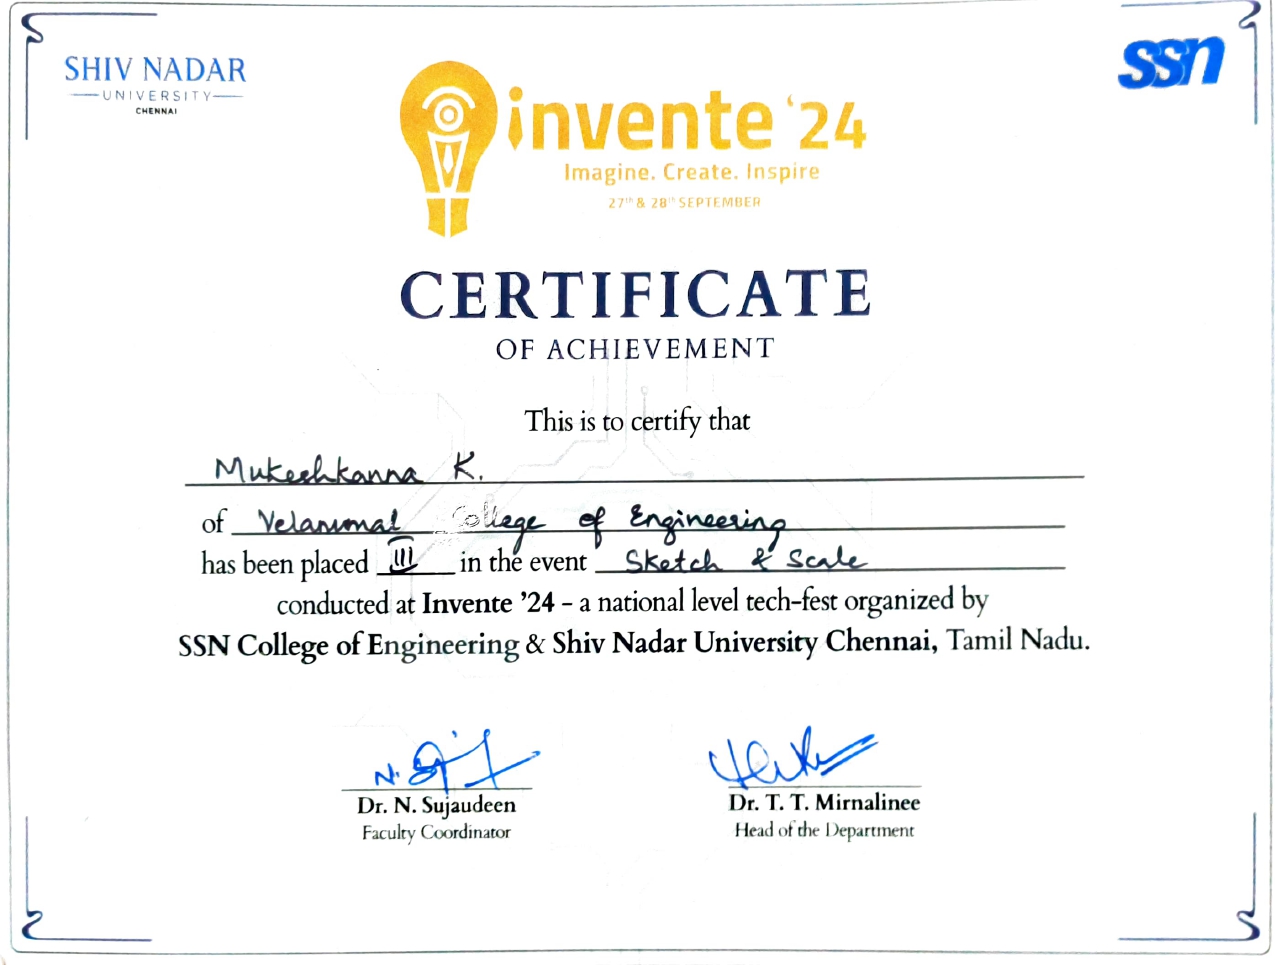 SHIV NADAR
UNIVERSITY
CHENNAI
ssn
invente '24
Imagine. Create. Inspire
27th & 28th SEPTEMBER
CERTIFICATE
OF ACHIEVEMENT
This is to certify that
Mukeshkanna K.
of Velammal College of Engineering
has been placed III in the event Sketch & Scale
conducted at Invente '24 – a national level tech-fest organized by
SSN College of Engineering & Shiv Nadar University Chennai, Tamil Nadu.
N.
Dr. N. Sujaudeen
Faculty Coordinator
Dr. T. T. Mirnalinee
Head of the Department